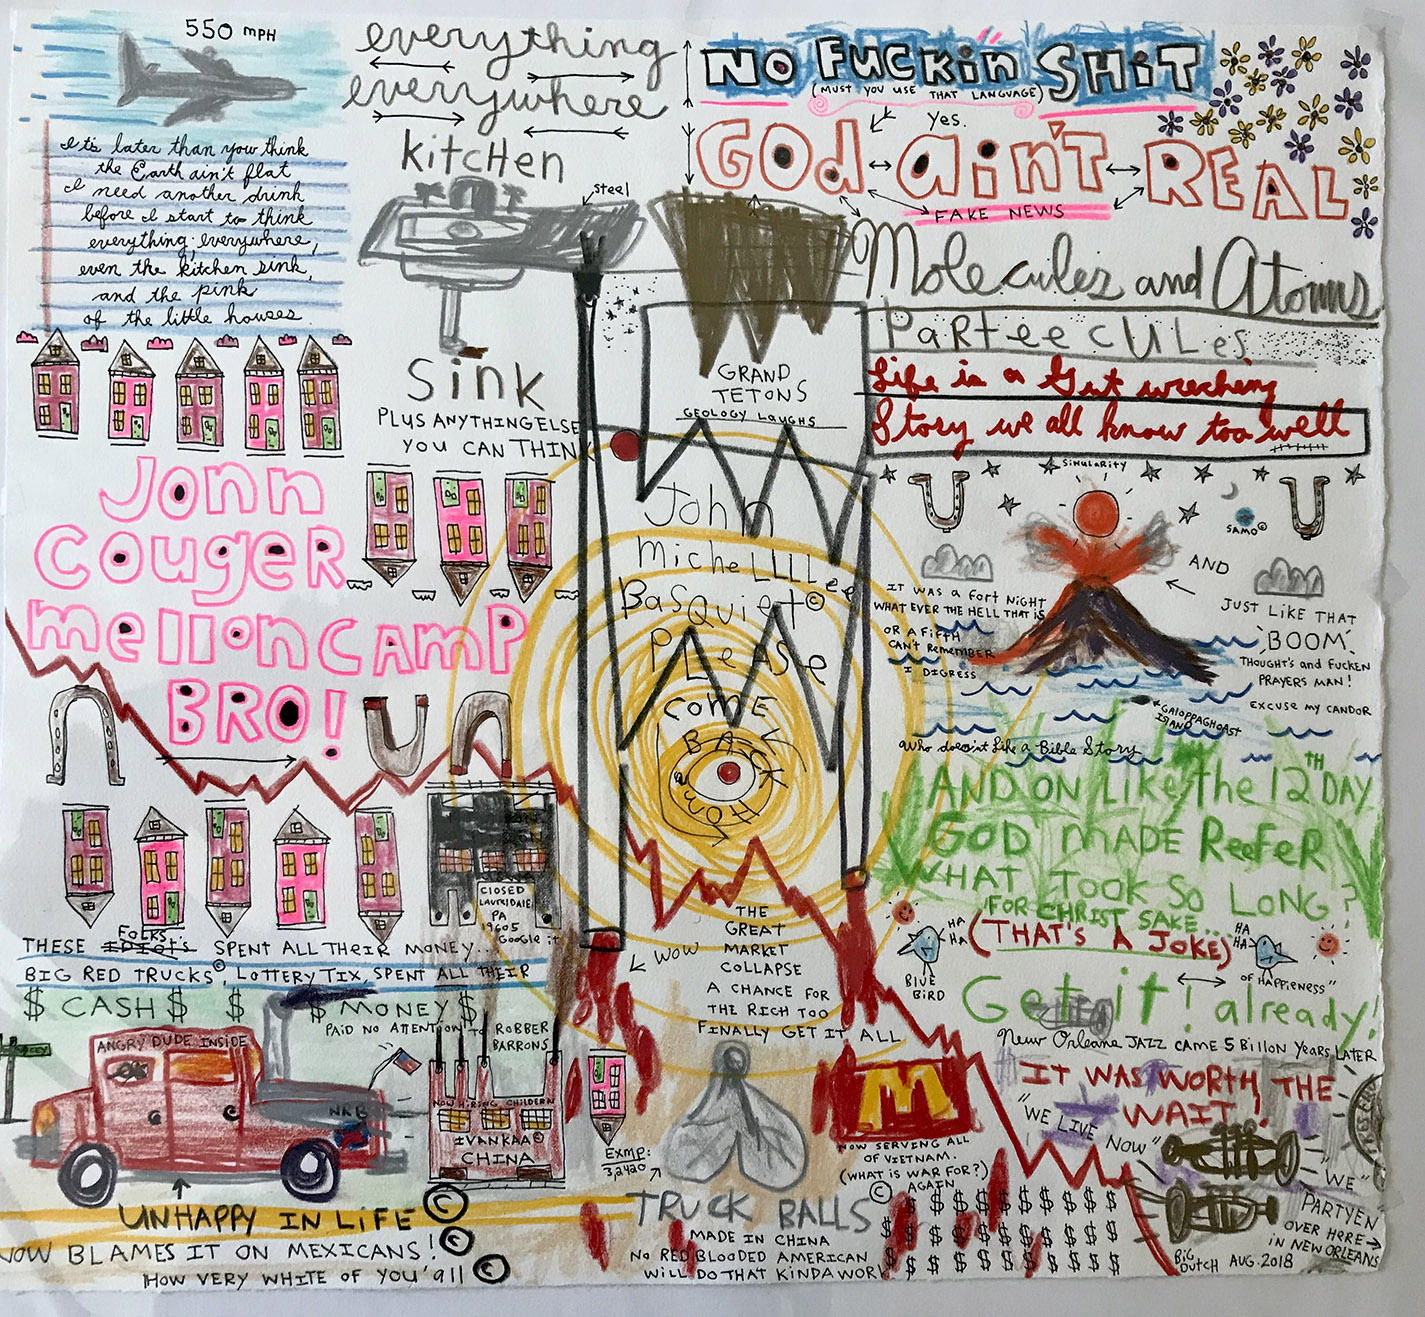 550 MPH
It's later than you think
the Earth ain't flat
I need another drink
before I start to think
everything, everywhere,
even the kitchen sink,
and the pink
of the little houses.
everything
everywhere
kitcHen
steel
Sink
PLUS ANYTHING ELSE
YOU CAN THINK
NO FUCKin SHiT
(MUST YOU USE THAT LANGUAGE)
Yes.
GOd ain'T REAL
FAKE NEWS
Molecules and Atoms
PaRtee cULes
Life is a Gut wrecheng
Story we all know too well
GRAND
TETONS
GEOLOGY LAUGHS
JoNn
CougeR
mellon CAmP
BRO!
John
MicheLLLLee
BaSQuiet©
PLeASe
COME
BACK
SiNGULARiTY
SAMO©
AND
JUST LIKE THAT
'BOOM'.
THOUGHT'S and FUCKEN
PRAYERS MAN!
EXCUSE MY CANDOR
IT WAS a FORT NiGHT
WHAT EVER THE HELL THAT iS
OR A FiFTH
CAN'T Remember
I DIGRESS
GALOPPAGHOAST
ISLAND
Who doesn't Like a Bible Story
AND ON Like the 12TH DAY
GOD MADE ReeFeR
WHAT TOOK SO LONG?
FOR CHRIST SAKE...
(THAT'S A JOKE)
HA
HA
HA
HA
BLUE
BIRD
OF HAPPieNESS"
Get it! already!
New Orleans JAZZ CAME 5 Billon YeaRS LATER
IT WAS WORTH THE
WAIT!
"WE LIVE NOW"
"WE"
PARTYEN
OVER HERE
iN NEW ORLEANS
BiG
DUTCH AUG. 2018
CLOSED
LAURELDALE,
PA
19605
Google it
THESE IDIOT'S FOLKS SPENT ALL THeiR MONEY...
BIG RED TRUCKS©, LOTTERY TIX, SPENT ALL THEIR
$ CASH $ $ $ MONEY $
PAID NO ATTENTION to ROBBER
BARRONS
ANGRY DUDE INSIDE
NOW HIRING CHILDERN
IVANKAA©
CHINA
UNHAPPY IN LIFE ©
NOW BLAMES IT ON MEXICANS! ©
HOW VERY WHITE OF YOU'all ©
WOW
THE
GREAT
MARKET
COLLAPSE
A CHANCE FOR
THE RICH TOO
FINALLY GET IT ALL
M
NOW SERVING ALL
OF VIETNAM.
(WHAT IS WAR FOR?)
© AGAIN
EXMP:
3,2420
TRUCK BALLS
MADE IN CHINA
NO RED BLOODED AMERICAN
WILL DO THAT KINDA WORK
$ $ $ $ $ $ $ $ $ $
$ $ $ $ $ $ $ $ $ $ $
$ $ $ $ $ $ $ $ $ $ $
$ $ $ $ $ $ $ $ $ $ $